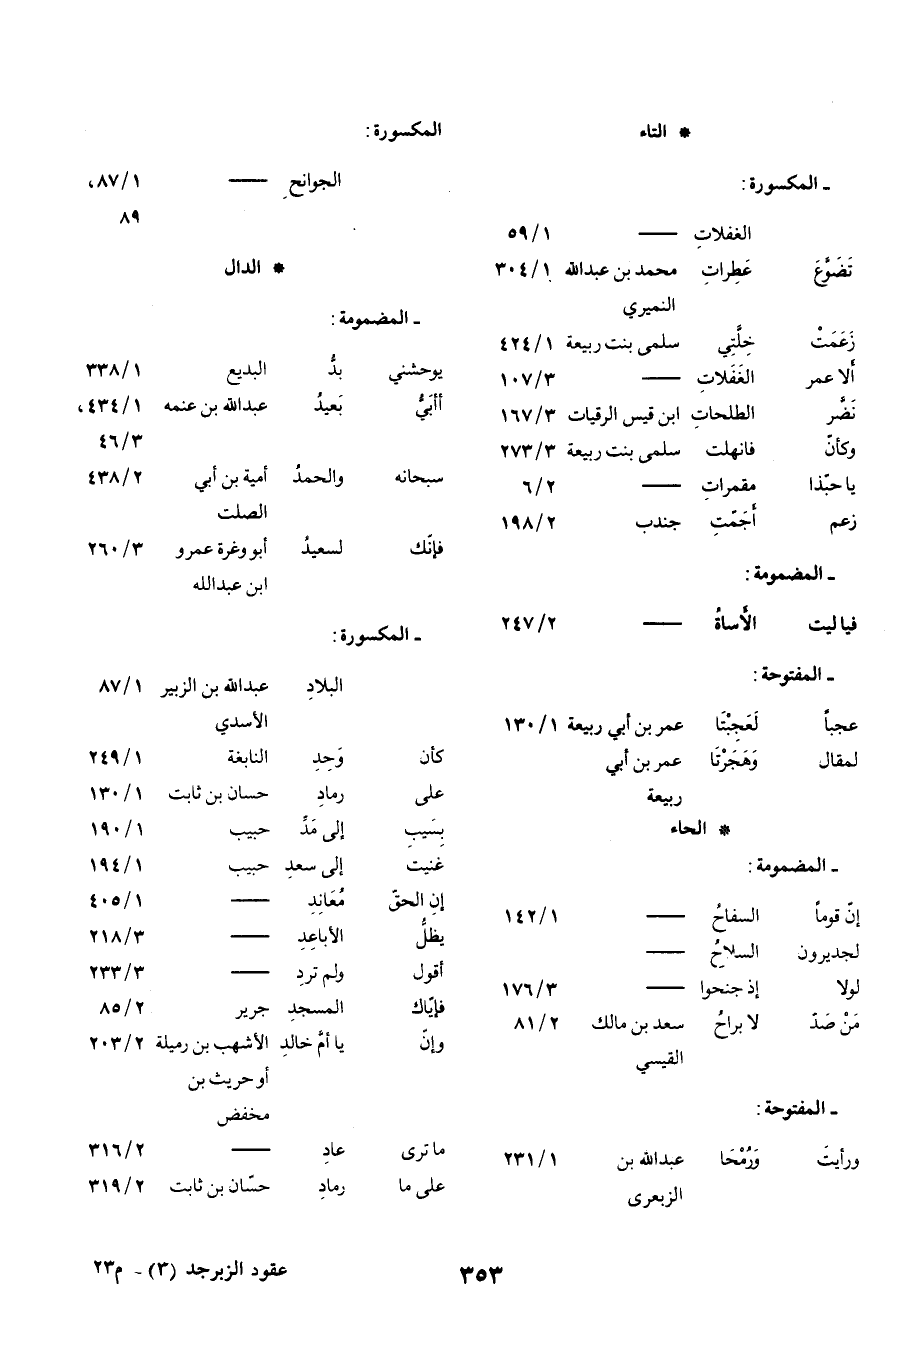 * التاء
ـ المكسورة:
الغفلاتِ —— ٥٩/١
تَضَوَّعَ عَطِراتِ محمد بن عبدالله ٣٠٤/١
النميري
زَعَمَتْ خِلَّتِي سلمى بنت ربيعة ٤٢٤/١
ألا عمر الغَفَلاتِ —— ١٠٧/٣
نَضَّر الطلحاتِ ابن قيس الرقيات ١٦٧/٣
وكأنّ فانهلت سلمى بنت ربيعة ٢٧٣/٣
يا حبّذا مقمراتِ —— ٦/٢
زعم أَجَمّتِ جندب ١٩٨/٢
ـ المضمومة:
فيا ليت الأَساةُ —— ٢٤٧/٢
ـ المفتوحة:
عجباً لَعَجِبْتَا عمر بن أبي ربيعة ١٣٠/١
لمقال وَهَجَرْتَا عمر بن أبي
ربيعة
* الحاء
ـ المضمومة:
إنّ قوماً السفاحُ —— ١٤٢/١
لجديرون السلاحُ ——
لولا إذ جنحوا —— ١٧٦/٣
مَنْ صَدّ لا براحُ سعد بن مالك ٨١/٢
القيسي
ـ المفتوحة:
ورأيتَ وَرُمْحَا عبدالله بن ٢٣١/١
الزبعرى
المكسورة:
الجوانحِ —— ٨٧/١،
٨٩
* الدال
ـ المضمومة:
يوحشني بدُّ البديع ٣٣٨/١
أأبَيُّ بَعيدُ عبدالله بن عنمه ٤٣٤/١،
٤٦/٣
سبحانه والحمدُ أمية بن أبي ٤٣٨/٢
الصلت
فإنّك لسعيدُ أبو وغرة عمرو ٢٦٠/٣
ابن عبدالله
ـ المكسورة:
البلادِ عبدالله بن الزبير ٨٧/١
الأسدي
كأن وَحِدِ النابغة ٢٤٩/١
على رمادِ حسان بن ثابت ١٣٠/١
بِسَيبِ إلى مَدِّ حبيب ١٩٠/١
غنيت إلى سعدِ حبيب ١٩٤/١
إن الحقّ مُعَانِدِ —— ٤٠٥/١
يظلُّ الأباعِدِ —— ٢١٨/٣
أقول ولم تردِ —— ٢٣٣/٣
فإيّاك المسجدِ جرير ٨٥/٢
وإنّ يا أمَّ خالدِ الأشهب بن رميلة ٢٠٣/٢
أو حريث بن
مخفض
ما ترى عادِ —— ٣١٦/٢
على ما رمادِ حسّان بن ثابت ٣١٩/٢
٣٥٣
عقود الزبرجد (٣) ـ م٢٣